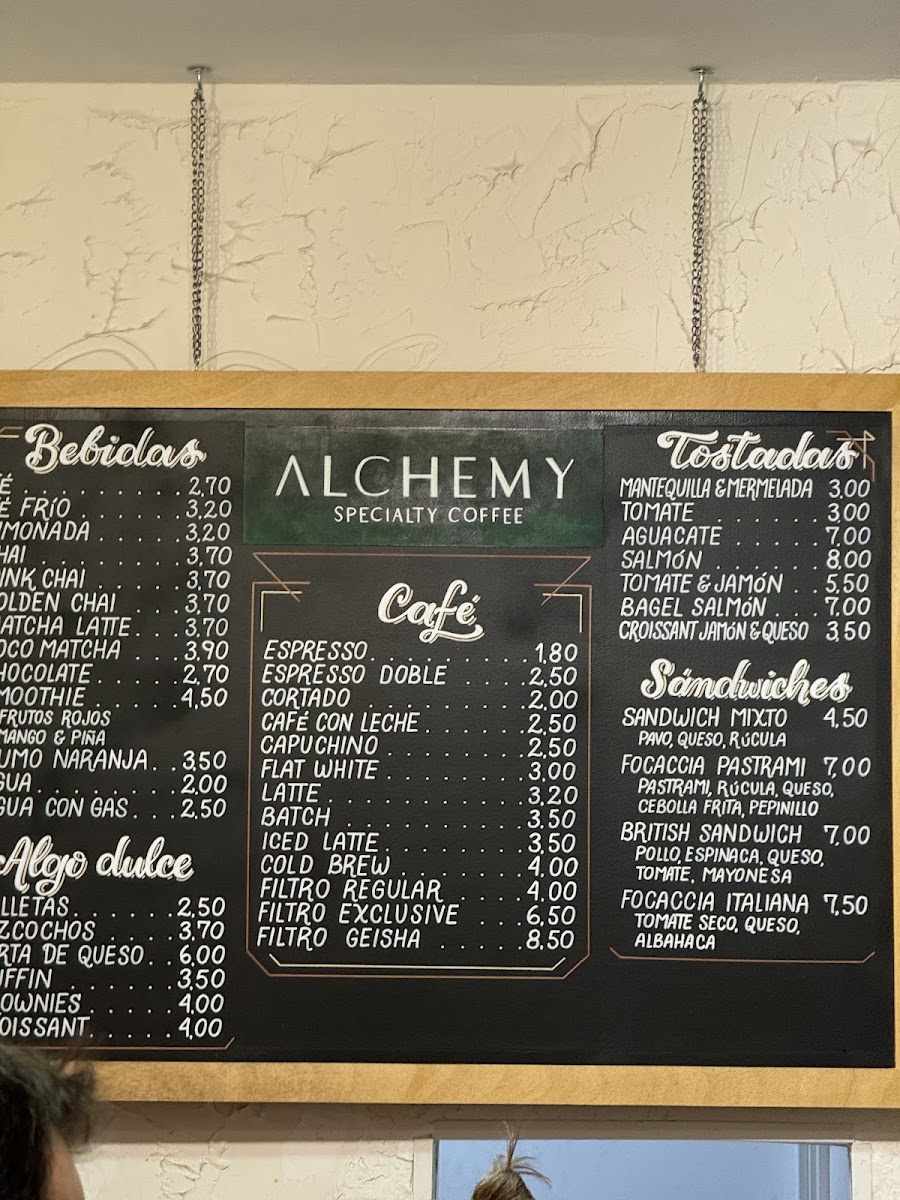 Bebidas
É . . . . . . . . 2,70
É FRÍO . . . . . 3,20
IMONADA . . . . 3,20
HAI . . . . . . . 3,70
INK CHAI . . . . 3,70
OLDEN CHAI . . . 3,70
ATCHA LATTE . . 3,70
OCO MATCHA . . . 3,90
HOCOLATE . . . . . 2,70
MOOTHIE . . . . . 4,50
FRUTOS ROJOS
MANGO & PIÑA
UMO NARANJA . . 3,50
GUA . . . . . . . 2,00
GUA CON GAS . . . 2,50
Algo dulce
LLETAS . . . . . . 2,50
ZCOCHOS . . . . 3,70
RTA DE QUESO . . 6,00
FFIN . . . . . . 3,50
OWNIES . . . . . 4,00
OISSANT . . . . . 4,00
ALCHEMY
SPECIALTY COFFEE
Café
ESPRESSO . . . . . . . . . 1,80
ESPRESSO DOBLE . . . . 2,50
CORTADO . . . . . . . . . 2,00
CAFÉ CON LECHE . . . . . 2,50
CAPUCHINO . . . . . . . 2,50
FLAT WHITE . . . . . . . 3,00
LATTE . . . . . . . . . . 3,20
BATCH . . . . . . . . . . 3,50
ICED LATTE . . . . . . . 3,50
COLD BREW . . . . . . . 4,00
FILTRO REGULAR . . . . 4,00
FILTRO EXCLUSIVE . . . 6,50
FILTRO GEISHA . . . . . 8,50
Tostadas
MANTEQUILLA & MERMELADA 3,00
TOMATE . . . . . . 3,00
AGUACATE . . . . . 7,00
SALMÓN . . . . . . 8,00
TOMATE & JAMÓN . . 5,50
BAGEL SALMÓN . . . 7,00
CROISSANT JAMÓN & QUESO 3,50
Sándwiches
SANDWICH MIXTO 4,50
PAVO, QUESO, RÚCULA
FOCACCIA PASTRAMI 7,00
PASTRAMI, RÚCULA, QUESO,
CEBOLLA FRITA, PEPINILLO
BRITISH SANDWICH 7,00
POLLO, ESPINACA, QUESO,
TOMATE, MAYONESA
FOCACCIA ITALIANA 7,50
TOMATE SECO, QUESO,
ALBAHACA